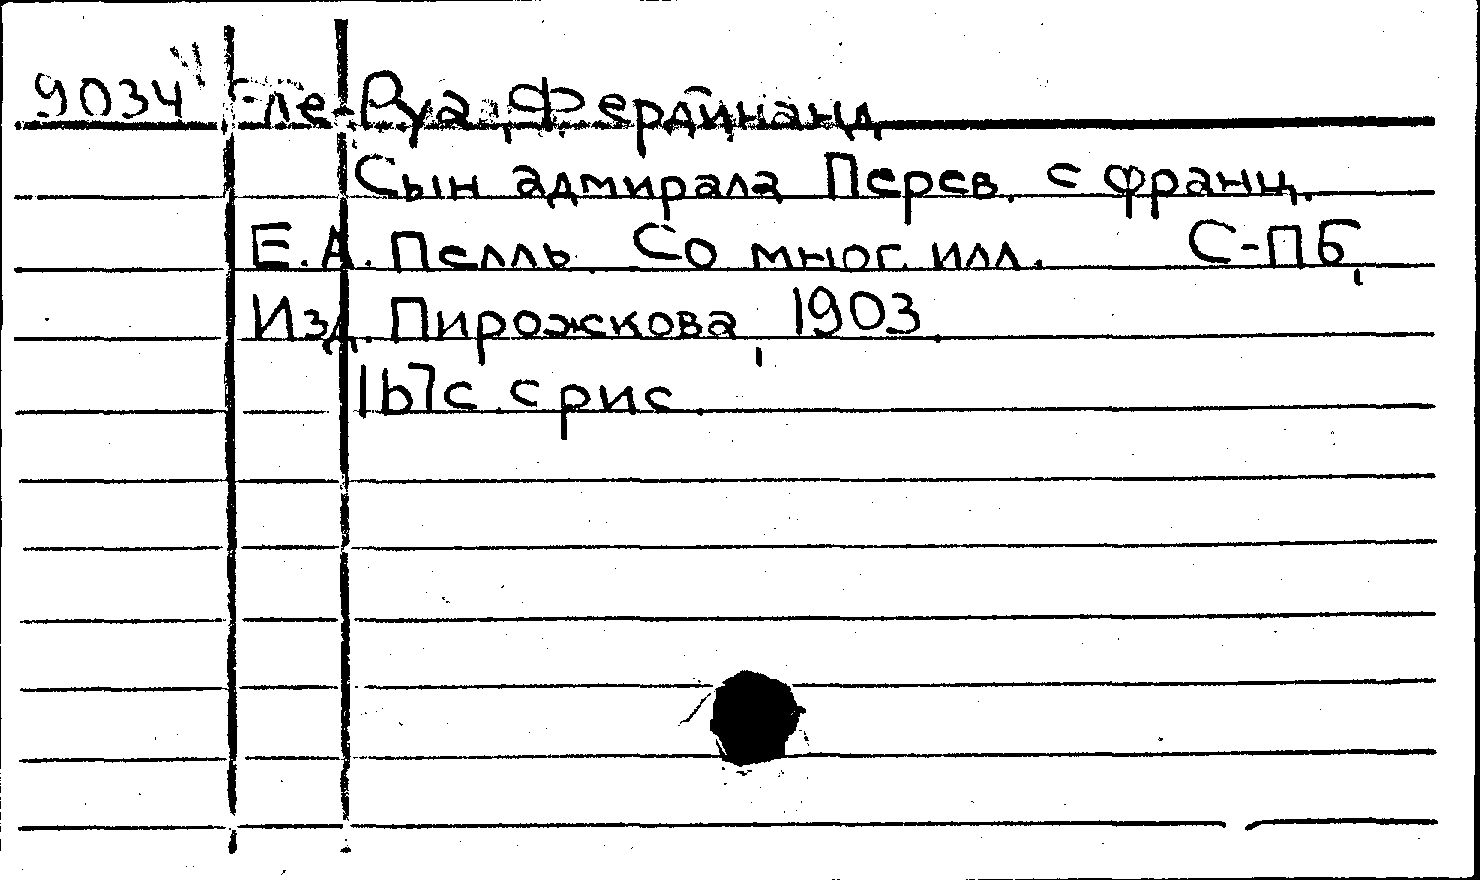 9034 Ле-Руа, Фердинанд
Сын адмирала Перев. с франц.
Е.А. Пелль. Со мног. илл. С-ПБ,
Изд. Пирожкова, 1903.
167с. с рис.